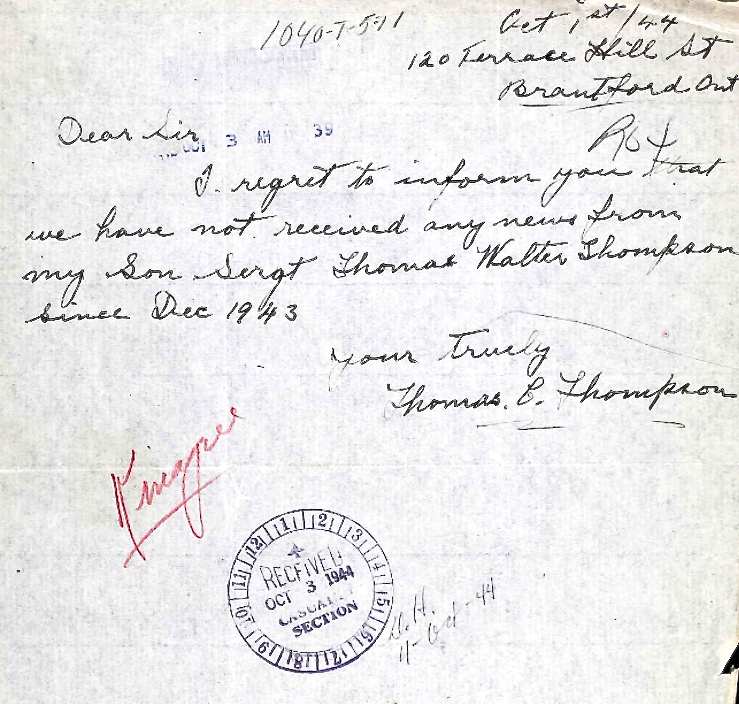 1040-T-571
Oct 1st/44
120 Terrace Hill St
Brantford Ont
Dear Sir
OCT 3 AM 39
I regret to inform you that
we have not received any news from
my Son Sergt Thomas Walter Thompson
since Dec 1943
your truely
Thomas. C. Thompson
12 1 2 3 4 5 6 7 8 9 10 11
RECEIVED
OCT 3 1944
CASUALTY
SECTION
4-Oct-44